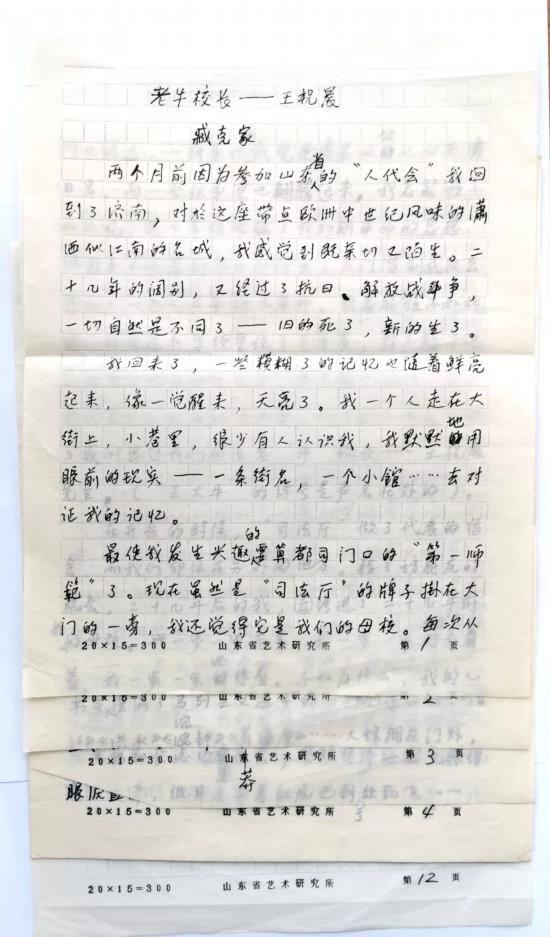 老牛校长——王祝晨
臧克家
两个月前因为参加山东省的“人代会”我回
到了济南，对於这座带点欧洲中世纪风味的潇
洒似江南的名城，我感觉到既亲切又陌生。二
十几年的阔别，又经过了抗日、解放战争，
一切自然是不同了——旧的死了，新的生了。
我回来了，一些模糊了的记忆也随着鲜亮
起来，像一觉醒来，天亮了。我一个人走在大
街上，小巷里，很少有人认识我，我默默地用
眼前的现实——一条街名，一个小馆……去对
证我的记忆。
最使我发生兴趣的要算都司门口的“第一师
范”了。现在虽然是“司法厅”的牌子掛在大
门的一旁，我还觉得它是我们的母校。每次从
20×15=300 山东省艺术研究所 第1页
山东省艺术研究所 第2页
20×15=300 山东省艺术研究所 第3页
莽
眼
20×15=300 山东省艺术研究所 第4页
20×15=300 山东省艺术研究所 第12页